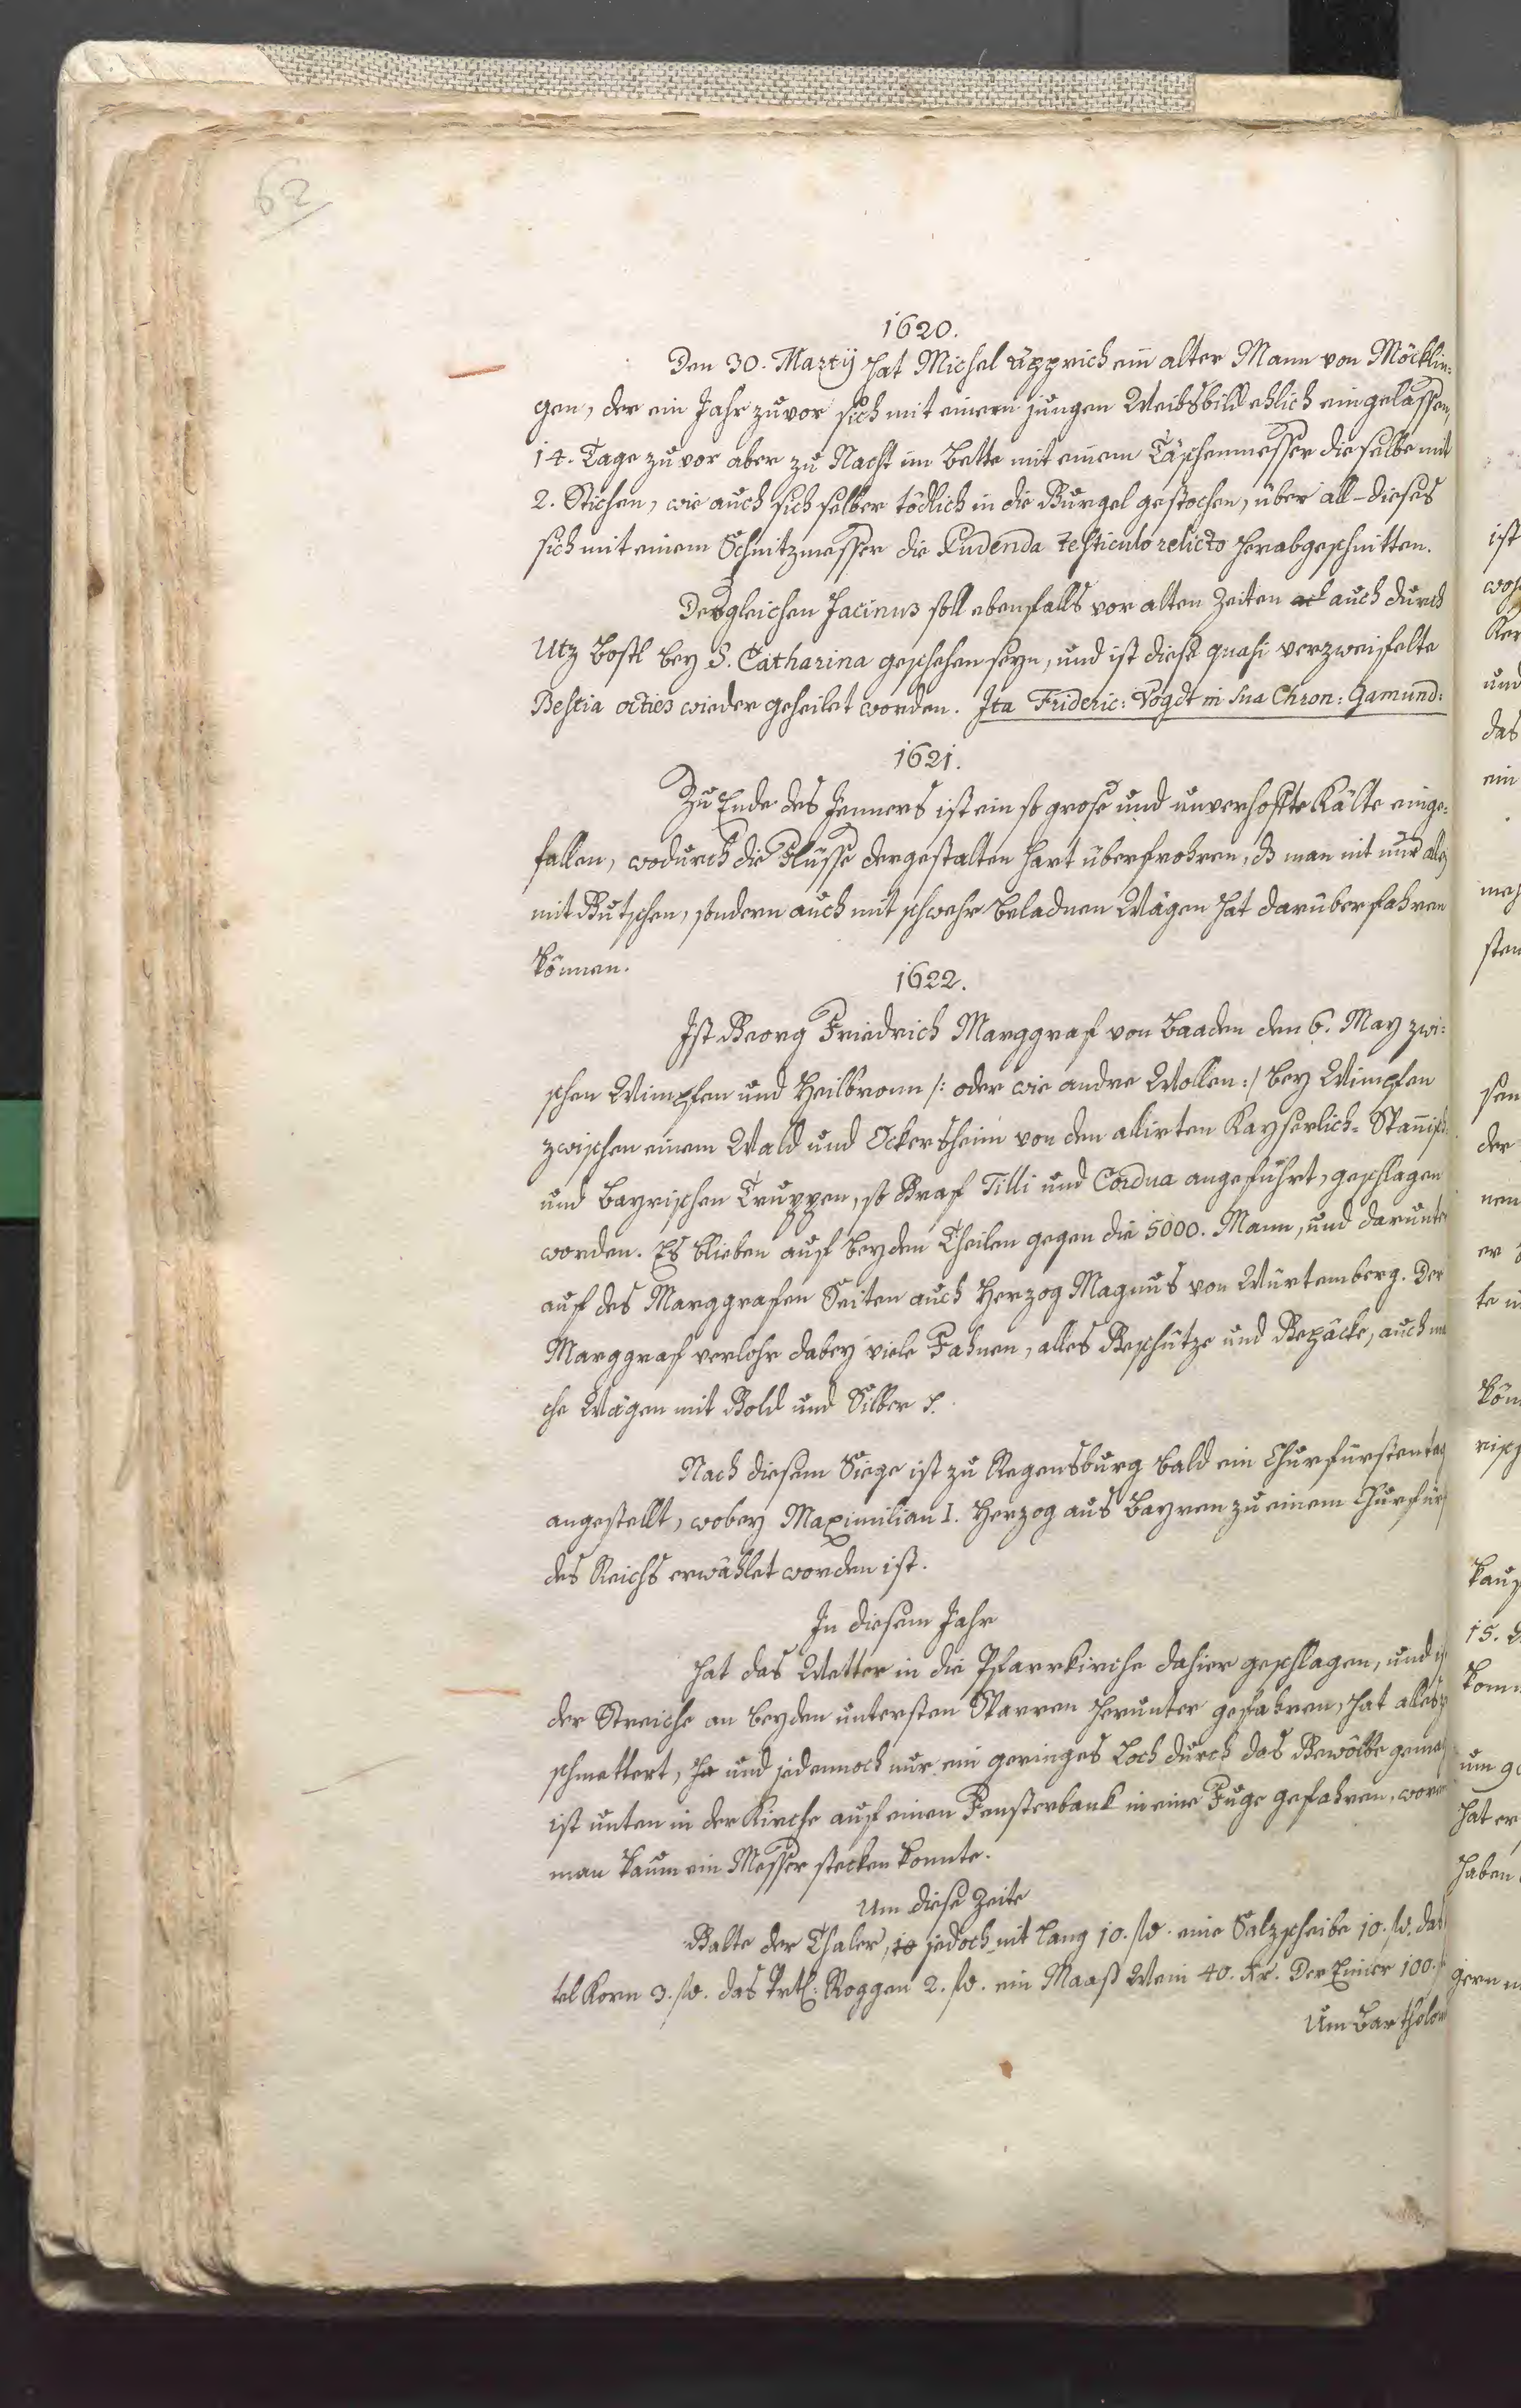 62
1620.
Den 30. Martij hat Michel Upprich ein alter Mann von Möcklin-
gen, der ein Jahr zuvor sich mit einem jungen Weibsbild ehlich eingelassen,
14. Tage zuvor aber zu Nacht im Bette mit einem Täschenmesser dieselbe mit
2. Stichen, wie auch sich selber tödlich in die Gurgel gestochen, über all-dieses
sich mit einem Schnitzmesser die Pudenda testiculo relicto herabgeschnitten.
Desgleichen Facinus soll ebenfalls vor alten Zeiten auch durch
Utz Bostl bey S. Catharina geschehen seyn, und ist diese quasi verzweifelte
Bestia octies wieder geheilet worden. Ita Frideric: Vogdt in sua Chron: Gamund:
1621.
Zu Ende des Jenners ist ein so grose und unverhoffte Kälte einge-
fallen, wodurch die Flüsse dergestalten hart überfrohren, dß man nit nur
mit Gutschen, sondern auch mit schwehr beladnen Wägen hat darüberfahren
können.
1622.
Ist Georg Friedrich Marggraf von Baaden den 6. May zwi-
schen Wimpfen und Heilbronn /: oder wie andre Wollen :/ bey Wimpfen
zwischen einem Wald und Ockersheim von den alirten Kayserlich- Spanisch
und Bayrischen Truppen, so Graf Tilli und Cordua angeführt, geschlagen
worden. Es blieben auf beyden Theilen gegen die 5000. Mann, und darunter
auf des Marggrafen Seiten auch Herzog Magnus von Würtemberg. Der
Marggraf verlohr dabey viele Fahnen, alles Geschütze und Gepäcke, auch
che Wägen mit Gold und Silber
Nach diesem Siege ist zu Regensburg bald ein Churfürstentag
angestellt, wobey Maximilian I. Herzog aus Bayren zu einem Churfürst
des Reichs erwählet worden ist.
In diesem Jahr
hat das Wetter in die Pfarrkirche dahier geschlagen, und
der Streiche an beyden untersten Sparren herunter gefahren, hat alles
schmettert, und jedennoch nur ein geringes Loch durch das Gewölbe
ist unten in der Kirche auf einen Fensterbank in eine Fuge gefahren,
man kaum ein Messer stecken konnte.
Um diese Zeite
Galte der Thaler, jedoch nit lang 10. fl. eine Salzscheibe 10. fl. das
tel Korn 3. fl. das Vrtl: Roggen 2. fl. ein Maaß Wein 40. Kr. Der Eimer 100.
Um Bartholom